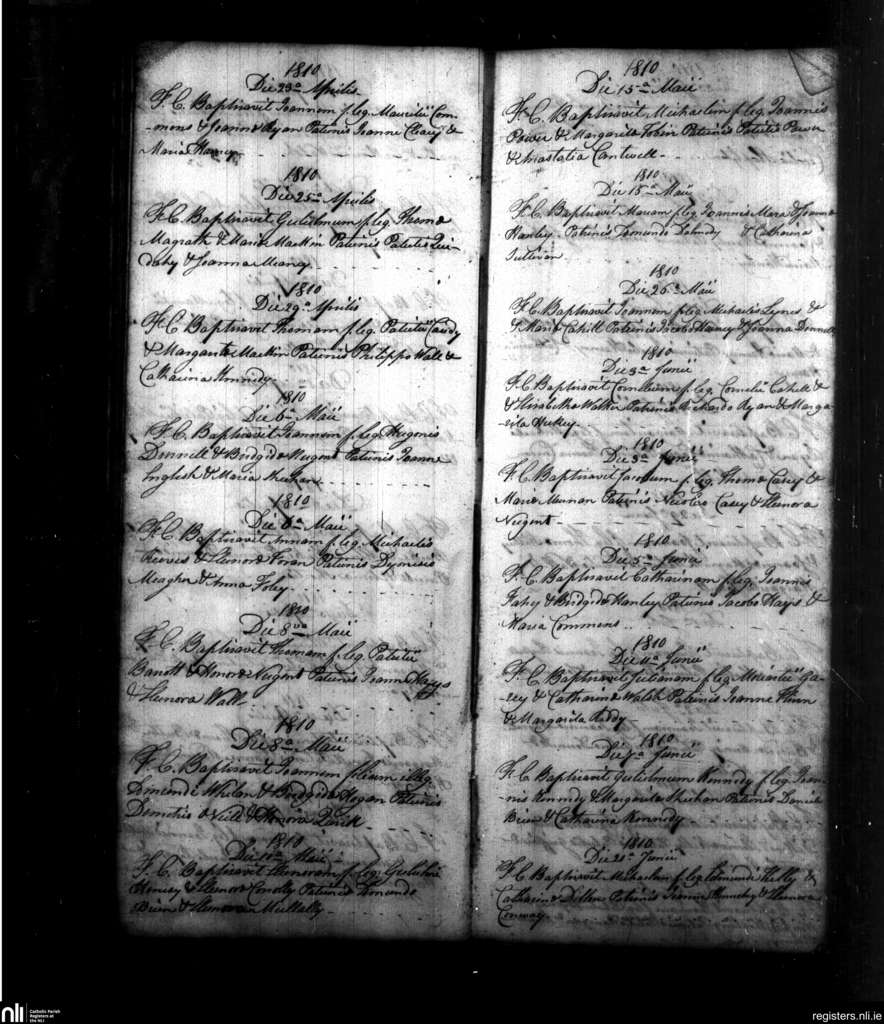 1810
Die 23a Aprilis
F. C. Baptisavit Joannem f. leg. Mauritii Com-
-mons & Joanna Ryan Patrinis Joanne Cleary &
Maria
1810
Die 25a Aprilis
F. C. Baptisavit Gulielmum f. leg. Thoma
Magrath & Maria Mackin Patrinis Patritio
& Joanna Meaney
1810
Die 29a Aprilis
F. C. Baptisavit Thomam f. leg. Patritii
& Margarita Mackin Patrinis Philippo Wall &
Catharina Kennedy
1810
Die 6a Maii
F. C. Baptisavit Joannem f. leg. Hugonis
Donnell & Brigida Nugent Patrinis Joanne
English & Maria
1810
Die 6a Maii
F. C. Baptisavit Annam f. leg. Michaelis
Reeves & Elenora Foran Patrinis Dyonisio
Meagher & Anna Foley
1810
Die 8va Maii
F. C. Baptisavit Thomam f. leg. Patritii
Barrett & Honora Nugent Patrinis Joanne Hays
& Elenora Wall
1810
Die 8a Maii
F. C. Baptisavit Joannem filium illeg.
Edmundi Whelan & Brigida Hogan Patrinis
& Honora Quirk
1810
Die 11a Maii
F. C. Baptisavit f. leg. Gulielmi
& Elenora Conolly Patrinis Edmundo
Brien & Elenora Mullally
1810
Die 15a Maii
F. C. Baptisavit Michaelem f. leg. Joannis
Power & Margarita Tobin Patrinis Patritio Power
& Anastatia Cantwell
1810
Die 15a Maii
F. C. Baptisavit Mariam f. leg. Joannis Mara & Joanna
Hanley Patrinis Edmundo & Catharina
Sullivan
1810
Die 26a Maii
F. C. Baptisavit Joannem f. leg. Michaelis Lynes &
& Maria Cahill Patrinis Jacobo & Joanna Donnell
1810
Die 3a Junii
F. C. Baptisavit Cornelium f. leg. Cornelii Cahill &
& Elizabetha Walker Patrinis Richardo Ryan & Marga-
-rita Hickey
1810
Die 3a Junii
F. C. Baptisavit Jacobum f. leg. Thoma Casey &
Maria Patrinis Nicolao Casey & Elenora
Nugent
1810
Die 5a Junii
F. C. Baptisavit Catharinam f. leg. Joannis
Fahy & Brigida Hanley Patrinis Jacobo Hays &
Maria Commons
1810
Die 11a Junii
F. C. Baptisavit Julianam f. leg. Mauritii Ga-
& Catharina Walsh Patrinis Joanne
& Margarita Reddy
1810
Die 7a Junii
F. C. Baptisavit Gulielmum Kennedy f. leg. Joan-
-nis Kennedy & Margarita Shehan Patrinis Daniele
Brien & Catharina Kennedy
1810
Die 21a Junii
F. C. Baptisavit Michaelem f. leg. Edmundi Kelly &
Catharina Patrinis Joanne & Elenora
Conway
nli Catholic Parish
Registers at
the NLI
registers.nli.ie